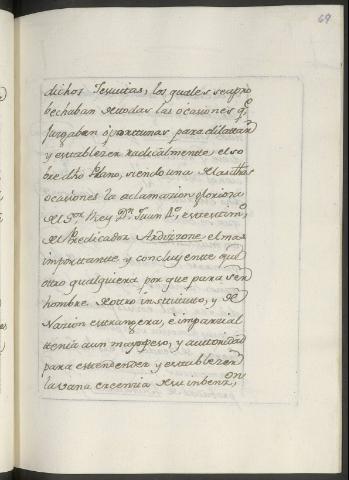 69
dichos Jesuitas, los quales se apro
bechaban de todas las ocasiones q.e
jusgaban oportunas para dilattar
y establezer radicalmente, el so
bre dho Plano, siendo una de las dhas
ocasiones la aclamazion gloriosa
del S.or Rey D.n Juan 4.o, estte tim.o
del Predicador Ardizzone el mas
importante y concluyente que
otro qualquiera por que para ser
hombre de otro institutto, y de
Nazion estrangera, è imparzial
tenia aun mayor peso, y auttoridad
para esttender y establezer
la vana creenzia de su inbenz.on